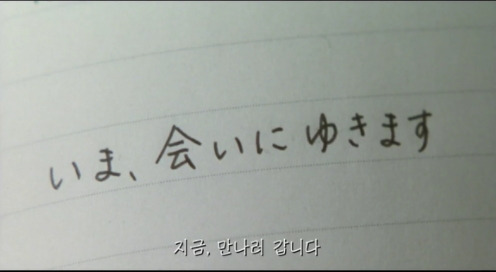 いま、会いにゆきます
지금, 만나러 갑니다